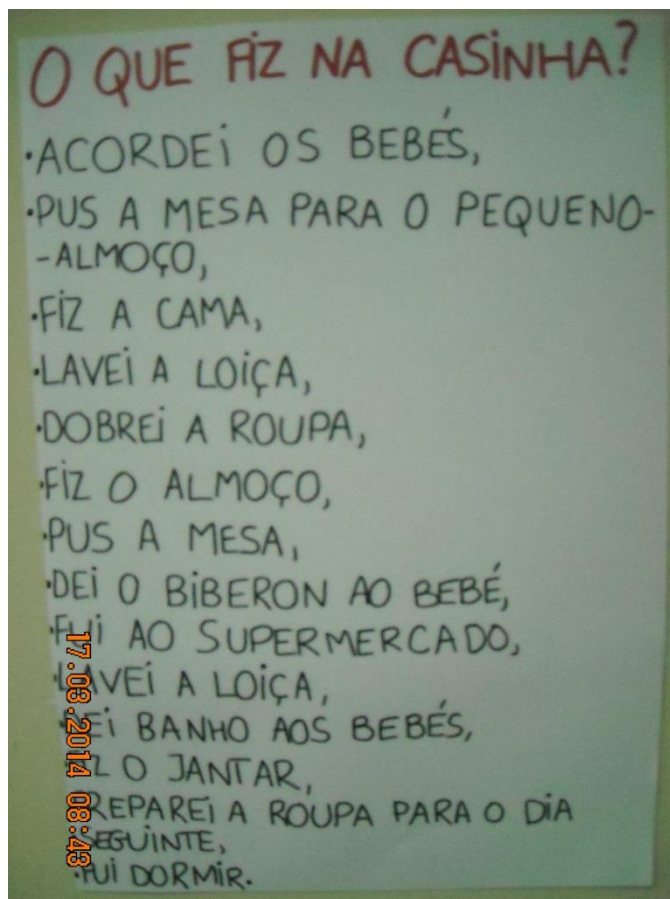 O QUE FIZ NA CASINHA?
·ACORDEI OS BEBÉS,
·PUS A MESA PARA O PEQUENO-
-ALMOÇO,
·FIZ A CAMA,
·LAVEI A LOIÇA,
·DOBREI A ROUPA,
·FIZ O ALMOÇO,
·PUS A MESA,
·DEI O BIBERON AO BEBÉ,
·FUI AO SUPERMERCADO,
·LAVEI A LOIÇA,
·DEI BANHO AOS BEBÉS,
·FIZ O JANTAR,
·PREPAREI A ROUPA PARA O DIA
SEGUINTE,
·FUI DORMIR.
17.03.2014 08:43